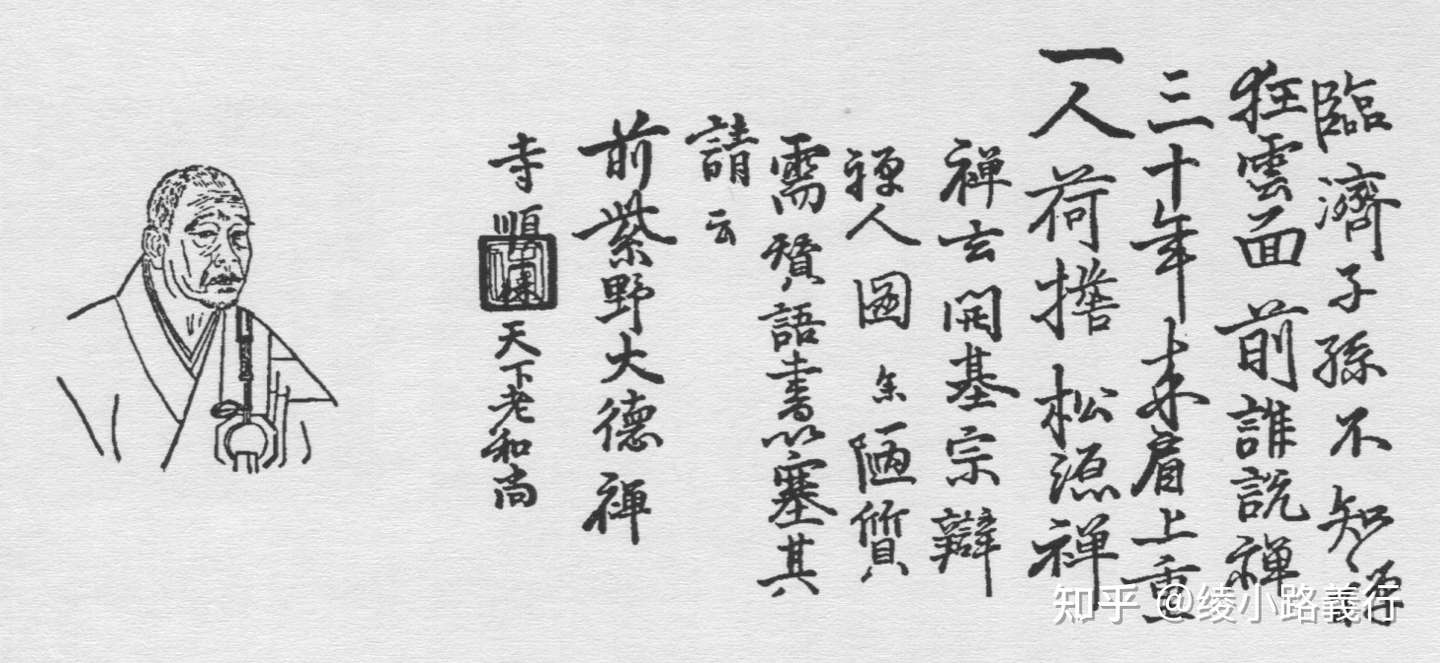 臨濟子孫不知禪
狂雲面前誰説禅
三十年来肩上重
一人荷擔松源禅
禅玄開基宗辯
禪人圖余陋質
需賛語書以塞其
請云
前紫野大德禅
寺順休天下老和尚
知乎 @绫小路義行